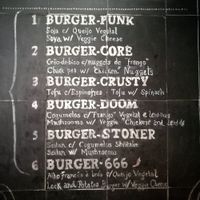 1 BURGER-FUNK
Soja c/ Queijo Vegetal
Soya w/ Veggie Cheese
2 BURGER-CORE
Grão-de-bico c/ nuggets de "frango"
Chick pea w/ "Chicken" Nuggets
3 BURGER-CRUSTY
Tofu c/ Espinafres - Tofu w/ Spinach
4 BURGER-DOOM
Cogumelos c/ "Frango" Vegetal e
Mushrooms w/ Veggie "Chicken" and
5 BURGER-STONER
Seitan c/ Cogumelos Shiitake
Seitan w/ Mushrooms
6 BURGER-666
Alho Francês e c/ Queijo Vegetal
Leek and Potatoes Burger w/ Veggie Cheese